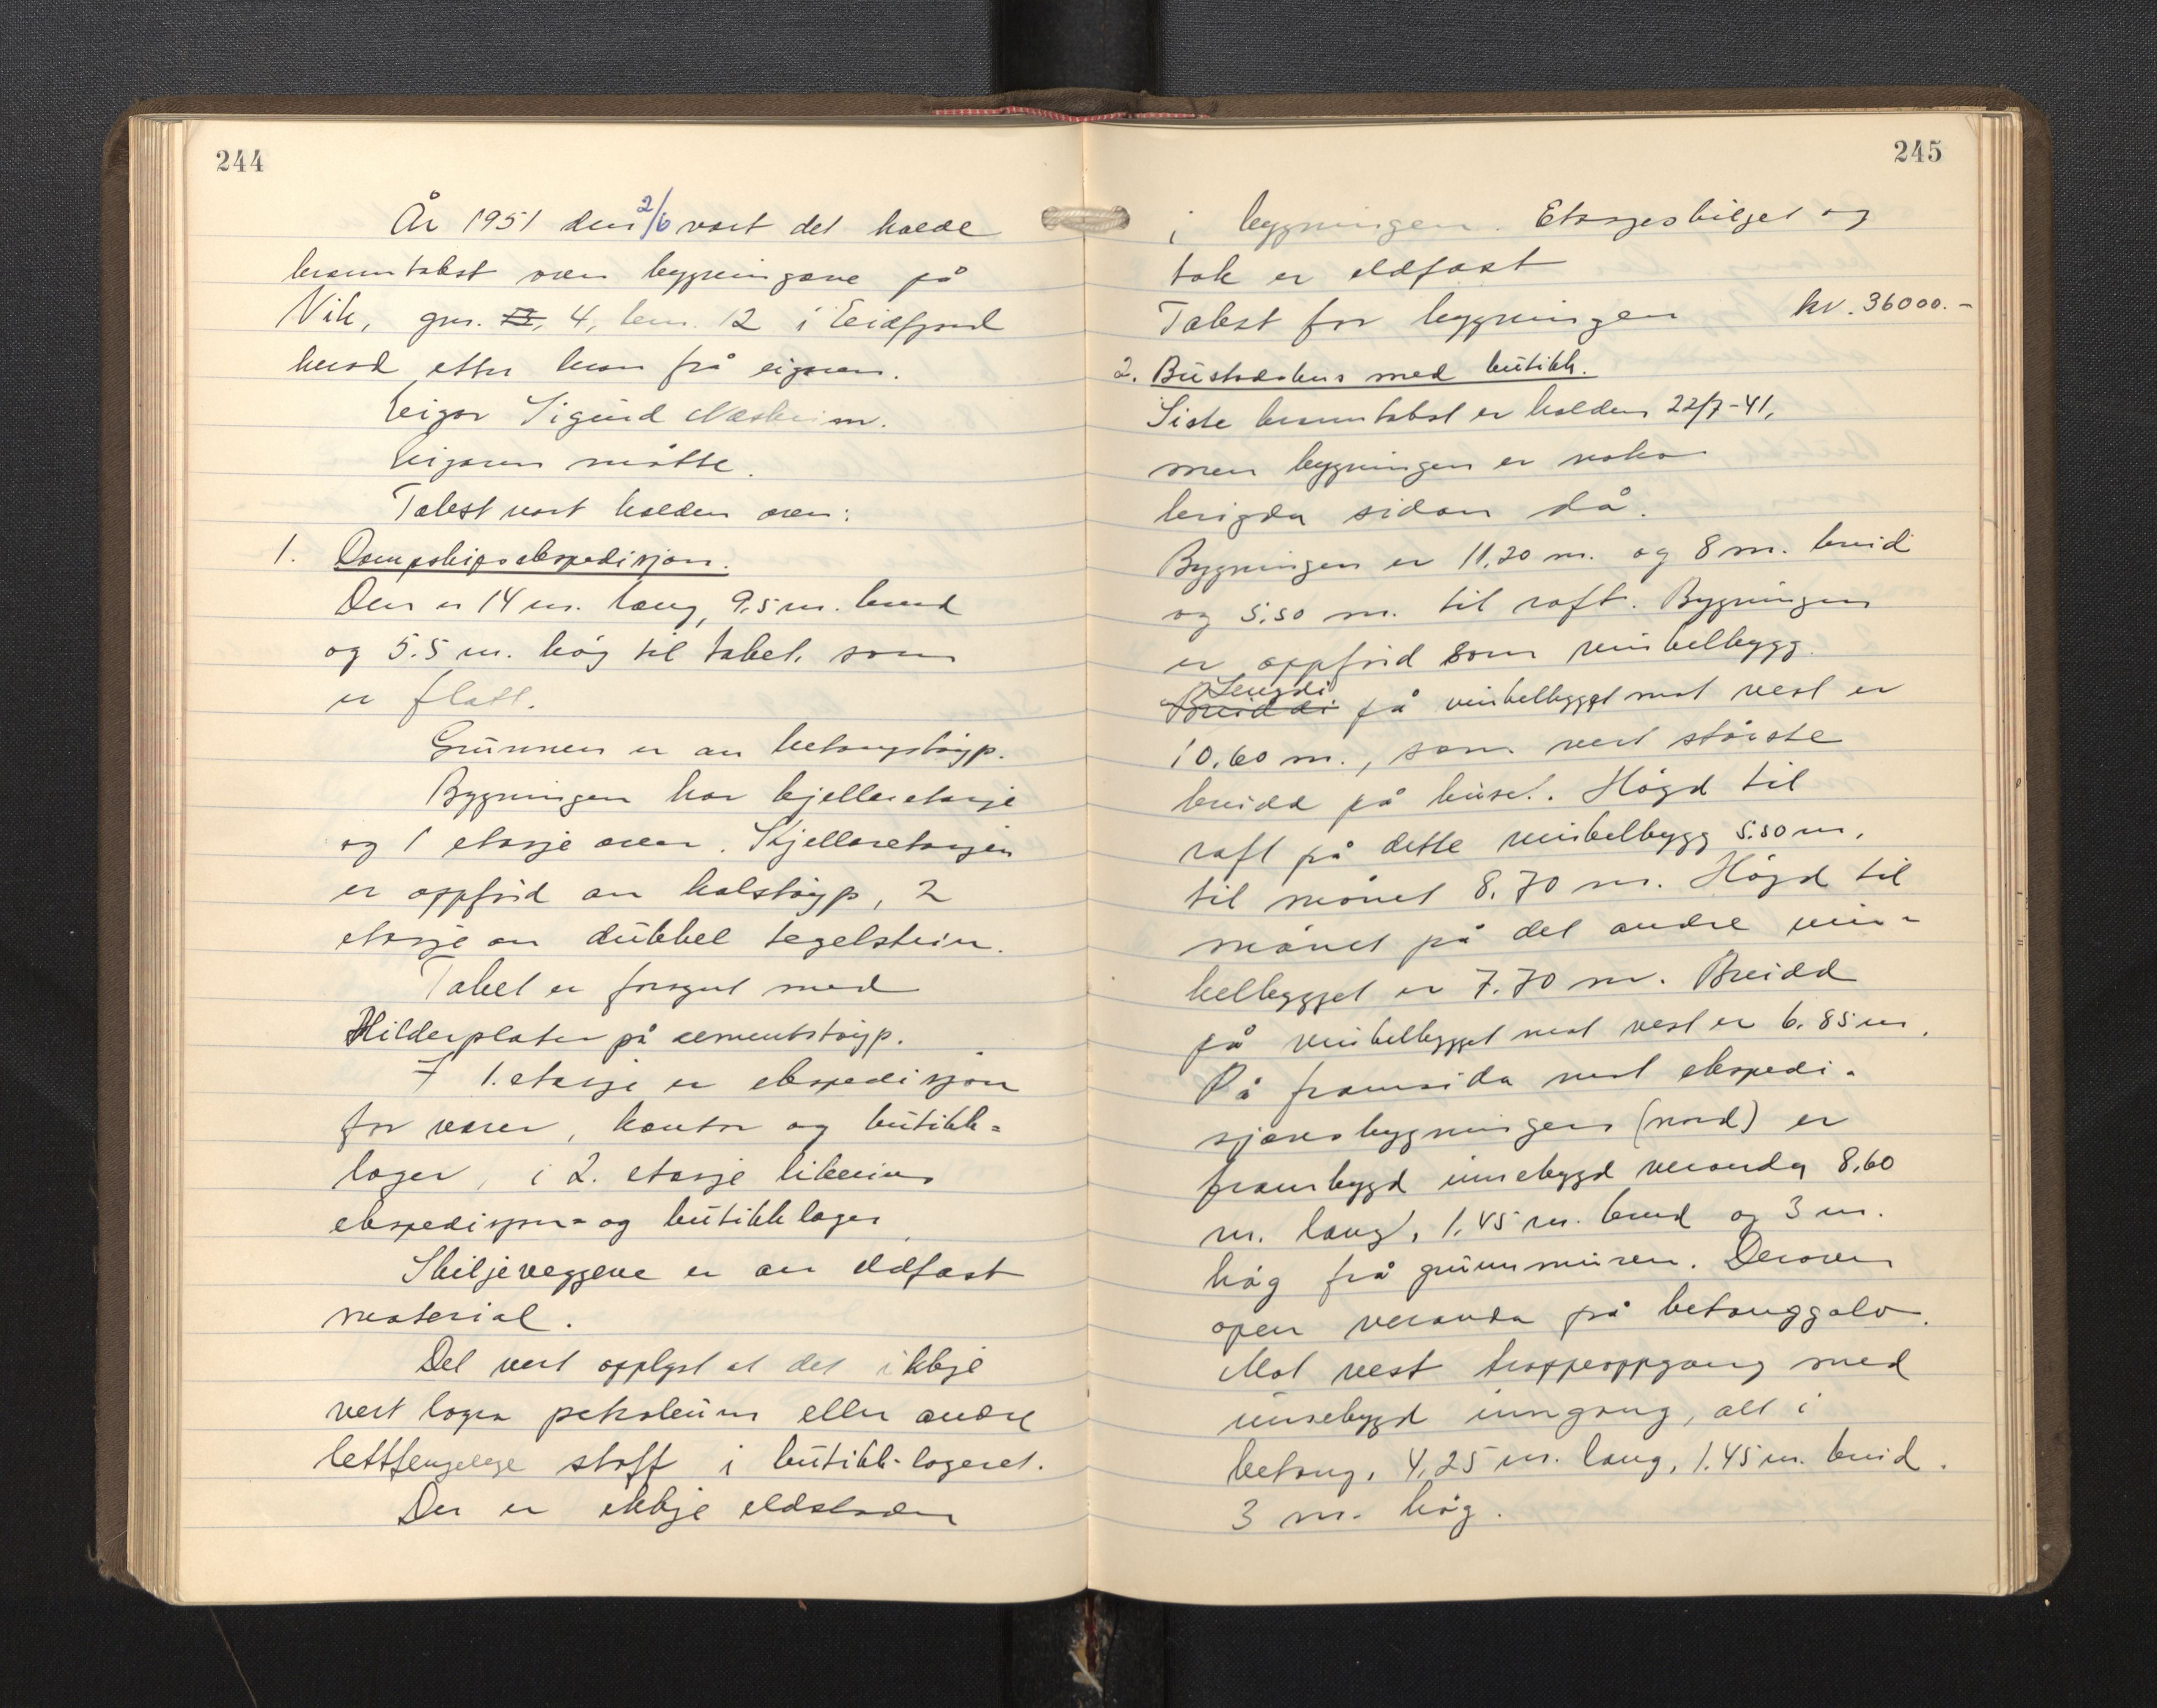 244
År 1951 den 2/6 vart det halde
branntakst over bygningane på
Vik, gnr. 13, 4, bnr. 12 i Eidfjord
herad etter krav frå eigaren.
Eigar Sigurd Næsheim.
Eigaren møtte.
Takst vart halden over:
1. Dampskipsekspedisjon.
Den er 14 m. lang, 9,5 m. breid
og 5.5 m. høg til taket, som
er flatt.
Grunnen er av betongstøyp.
Bygningen har kjelleretasje
og 1 etasje over. Kjelleretasjen
er oppførd av holstøyp, 2
etasje av dubbel tegelstein.
Taket er forsynt med
Hilderplater på cementstøyp.
I 1. etasje er ekspedisjon
for varer, kontor og butikk-
lager, i 2. etasje likeeins
ekspedisjon- og butikklager.
Skiljeveggene er av eldfast
material.
Det vert opplyst at det ikkje
vert lagra petroleum eller andre
lettfengelege stoff i butikk-lageret.
Der er ikkje eldstader
245
i bygningen. Etasjeskiljet og
tak er eldfast
Takst for bygningen kr. 36000.-
2. Bustadshus med butikk.
Siste branntakst er halden 22/7-41,
men bygningen er noko
brigda sidan då.
Bygningen er 11,20 m. og 8 m. breid
og 5.50 m. til raft. Bygningen
er oppførd som vinkelbygg.
Breiddi Lengdi på vinkelbygget mot vest er
10.60 m., som vert største
breidd på huset. Høgd til
raft på dette vinkelbygg 5.50 m,
til mønet 8.70 m. Høgd til
mønet på det andre vin-
kelbygget er 7.70 m. Breidd
på vinkelbygget mot vest er 6.85 m.
På framsida mot ekspedi-
sjonsbygningen (nord) er
frambygd innebygd veranda 8,60
m. lang, 1,45 m. breid og 3 m.
høg frå grunnmuren. Derover
open veranda på betonggolv.
Mot vest trappeoppgang med
innebygd inngang, alt i
betong, 4,25 m. lang, 1.45 m. breid.
3 m. høg.